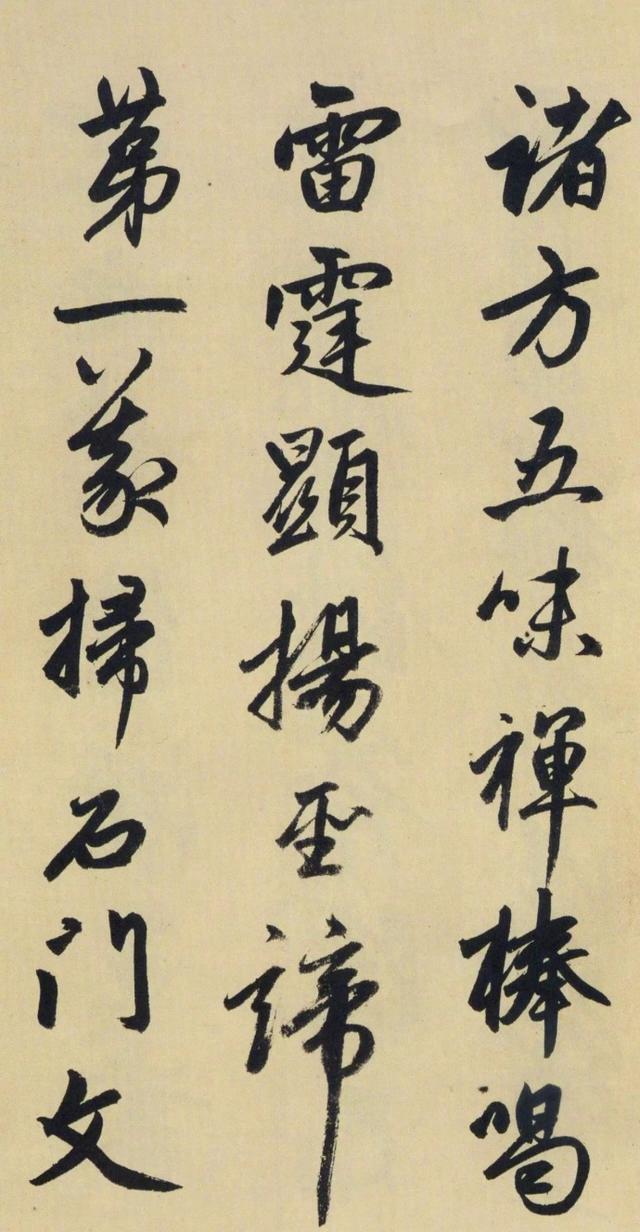 诸方五味禅棒喝
雷霆顯揚聖諦
第一義掃石門文